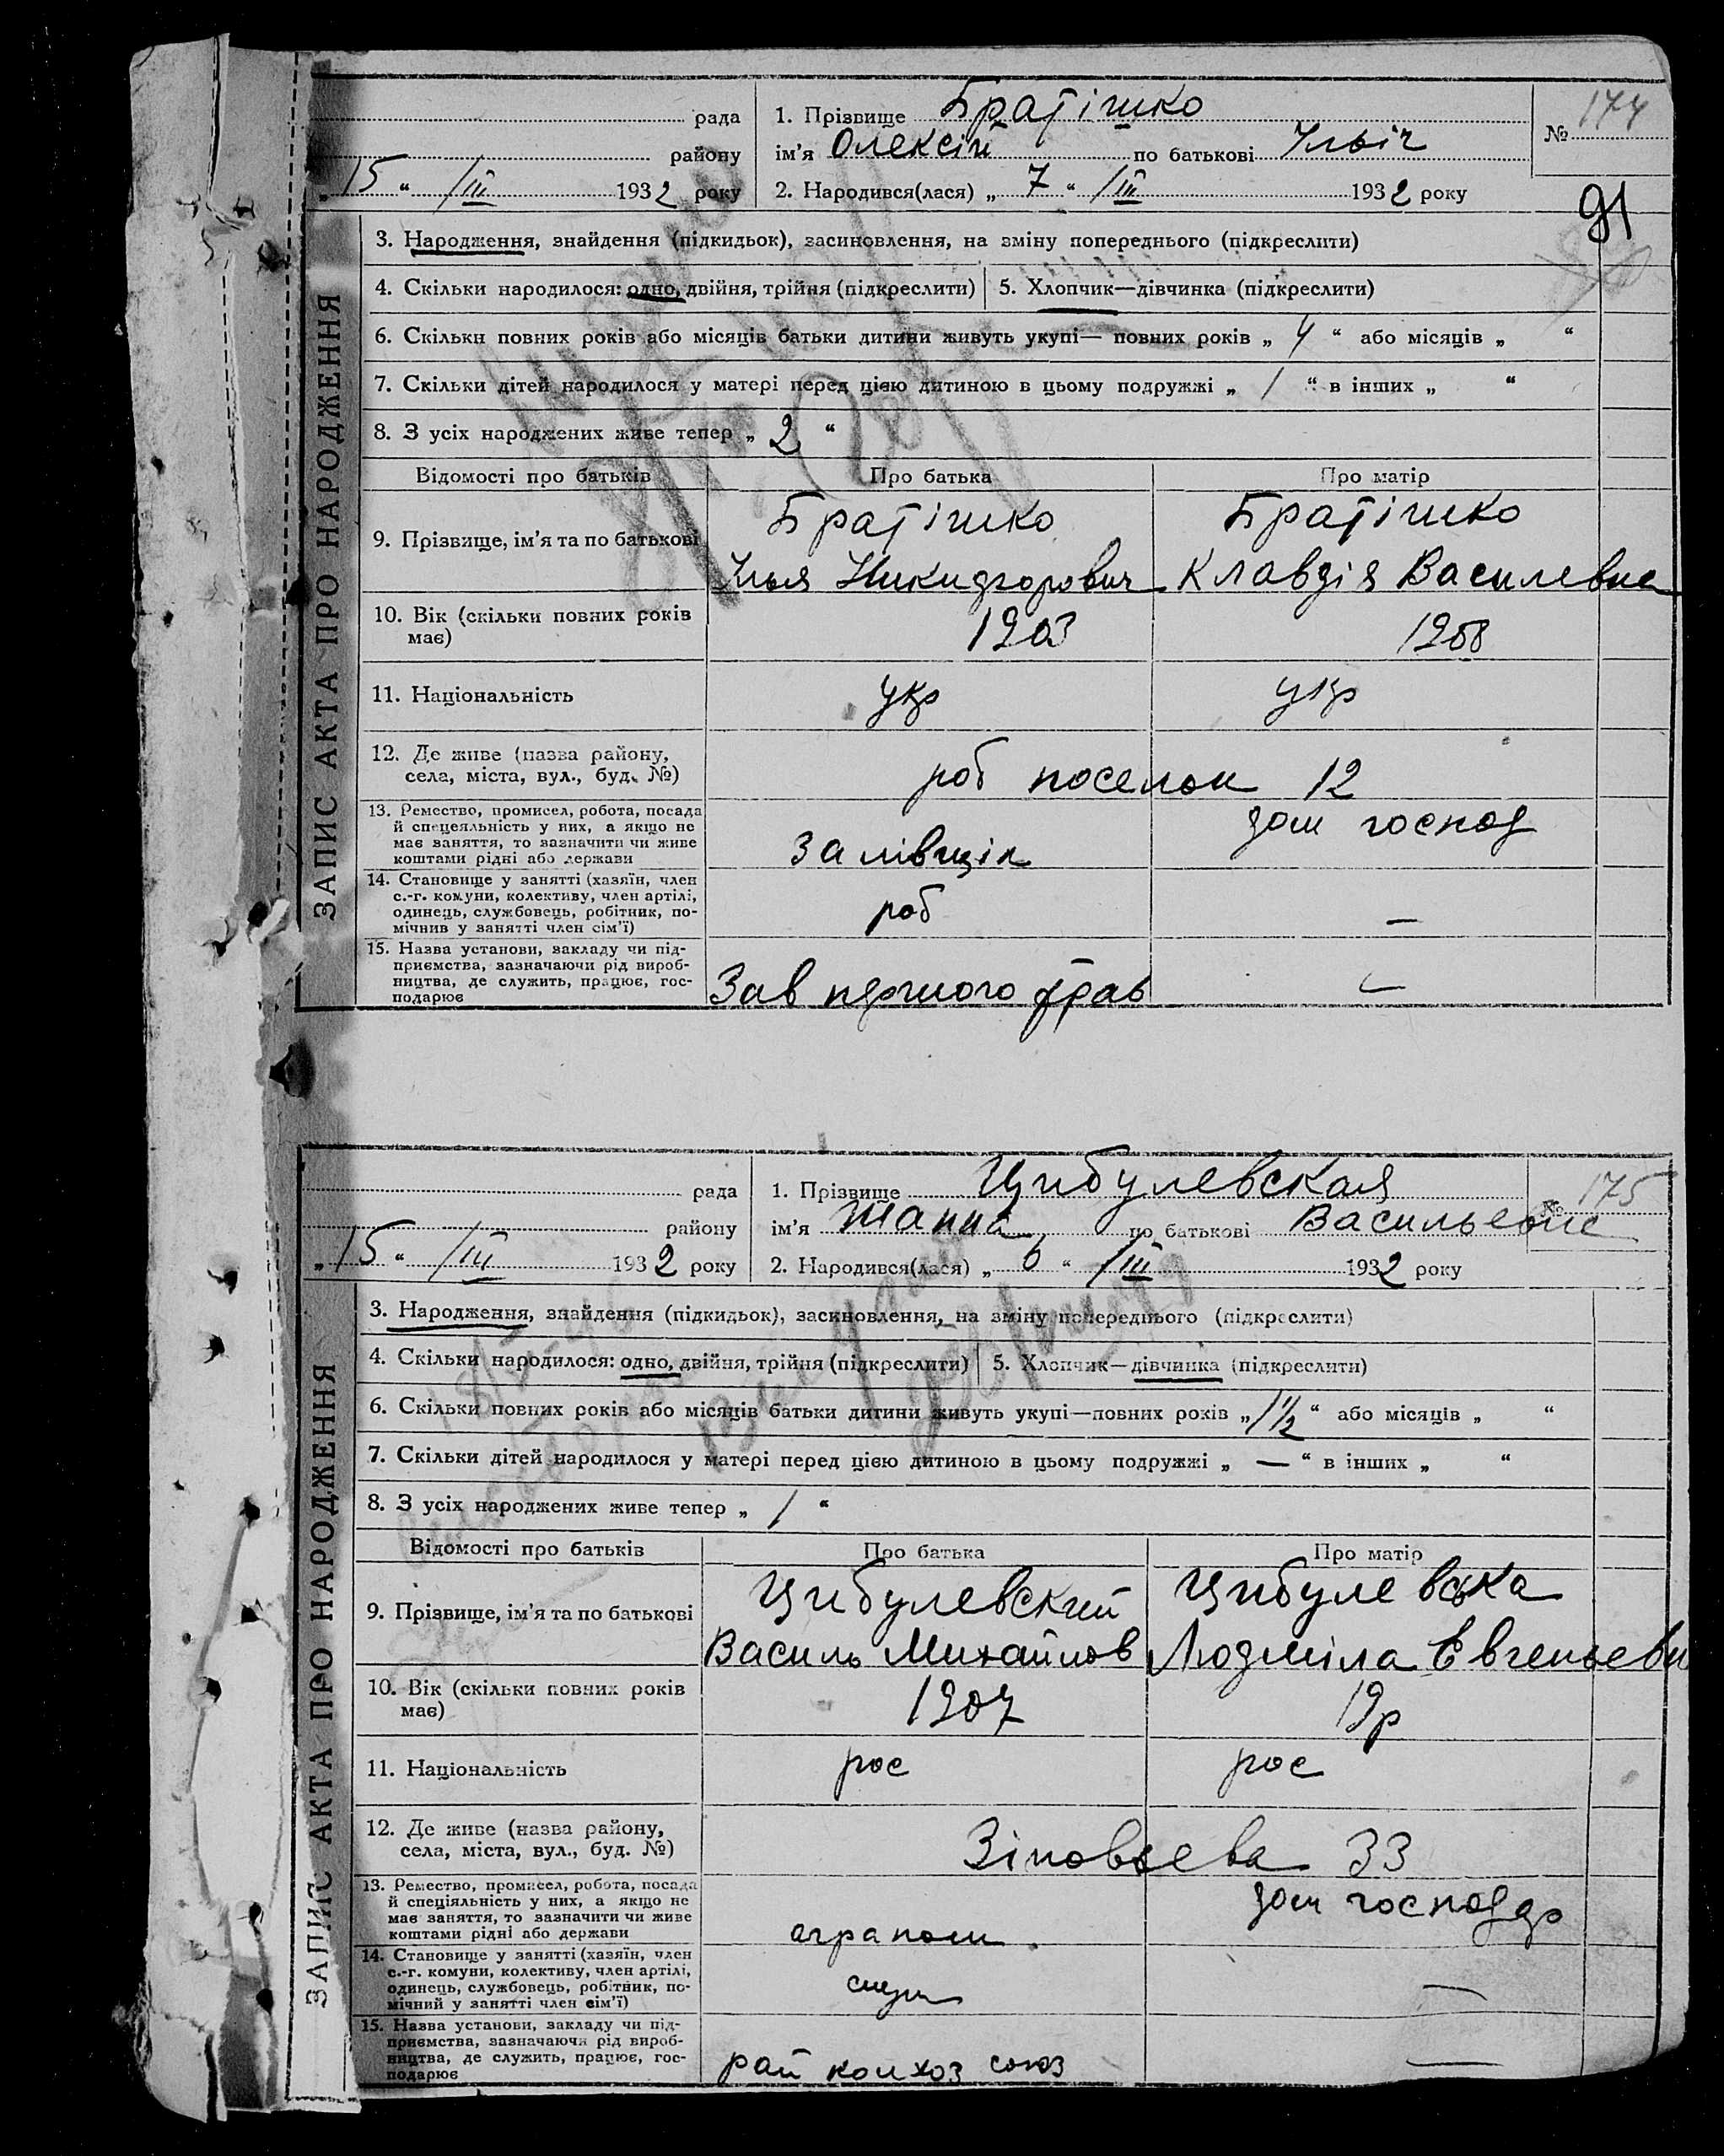 ЗАПИС АКТА ПРО НАРОДЖЕННЯ
рада
району
„ 15 “ /III 1932 року
1. Прізвище Братішко
ім’я Олексій по батькові Ільіч
2. Народився(лася) „ 7 “ /III 1932 року
№ 174
91
3. Народження, знайдення (підкидьок), засиновлення, на зміну попереднього (підкреслити)
4. Скільки народилося: одно, двійня, трійня (підкреслити) 5. Хлопчик—дівчинка (підкреслити)
6. Скільки повних років або місяців батьки дитини живуть укупі— повних років „ 4 “ або місяців „ “
7. Скільки дітей народилося у матері перед цією дитиною в цьому подружжі „ / “ в інших „ “
8. З усіх народжених живе тепер „ 2 “
Відомості про батьків Про батька Про матір
9. Прізвище, ім’я та по батькові
Братішко Братішко
Ілья Клавдія Василевна
10. Вік (скільки повних років має)
1903 1908
11. Національність укр укр
12. Де живе (назва району, села, міста, вул., буд. №)
роб поселок 12
13. Ремество, промисел, робота, посада
й спецеяльність у них, а якщо не
має заняття, то зазначити чи живе
коштами рідні або держави
Залівщік дом господ
14. Становище у занятті (хазяїн, член
с.-г. комуни, колективу, член артілі,
одинець, службовець, робітник, по-
мічнив у занятті член сім’ї)
роб —
15. Назва установи, закладу чи під-
приємства, зазначаючи рід вироб-
ництва, де служить, працює, гос-
подарює
Зав першого трав —
ЗАПИС АКТА ПРО НАРОДЖЕННЯ
рада
району
„ 15 “ /III 1932 року
1. Прізвище Цибулевская
ім’я Жанна по батькові Васильевне
2. Народився(лася) „ 6 “ /III 1932 року
№ 175
3. Народження, знайдення (підкидьок), засиновлення, на зміну попереднього (підкреслити)
4. Скільки народилося: одно, двійня, трійня (підкреслити) 5. Хлопчик—дівчинка (підкреслити)
6. Скільки повних років або місяців батьки дитини живуть укупі—повних років „ 1½ “ або місяців „ “
7. Скільки дітей народилося у матері перед цією дитиною в цьому подружжі „ — “ в інших „ “
8. З усіх народжених живе тепер „ / “
Відомості про батьків Про батька Про матір
9. Прізвище, ім’я та по батькові
Цибулевский Цибулевська
Василь Михайлов Людміла Евгеньевн
10. Вік (скільки повних років має)
1907 19р
11. Національність рос рос
12. Де живе (назва району, села, міста, вул., буд. №)
Зіновьева 33
13. Ремество, промисел, робота, посада
й спеціяльність у них, а якщо не
має заняття, то зазначити чи живе
коштами рідні або держави
аграном дом господар
14. Становище у занятті (хазяїн, член
с.-г. комуни, колективу, член артілі,
одинець, службовець, робітник, по-
мічний у занятті член сім’ї)
служ —
15. Назва установи, закладу чи під-
приємства, зазначаючи рід вироб-
ництва, де служить, працює, гос-
подарює
рай колхоз союз —